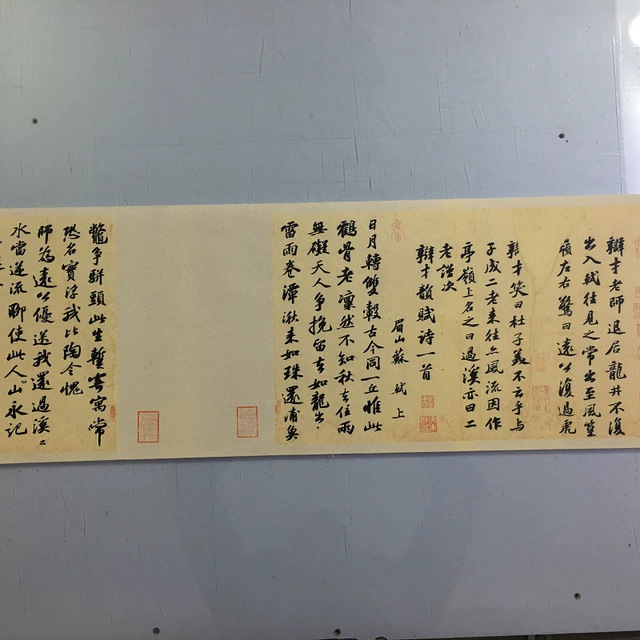 辯才老師退居龍井不復
出入軾往見之常出至風篁
嶺左右驚曰遠公復過虎
辯才笑曰杜子美不云乎與
子成二老來往亦風流因作
亭嶺上名之曰過溪亦曰二
老謹次
辯才韻賦詩一首
眉山蘇軾上
日月轉雙轂古今同一丘惟此
鶴骨老凜然不知秋去住兩
無礙天人爭挽留去如龍出
雷雨卷潭湫來如珠還浦魚
鼈爭駢頭此生暫寄寓常
恐名實浮我比陶令愧
師為遠公優送我還過溪溪
水當逆流聊使此人山永記